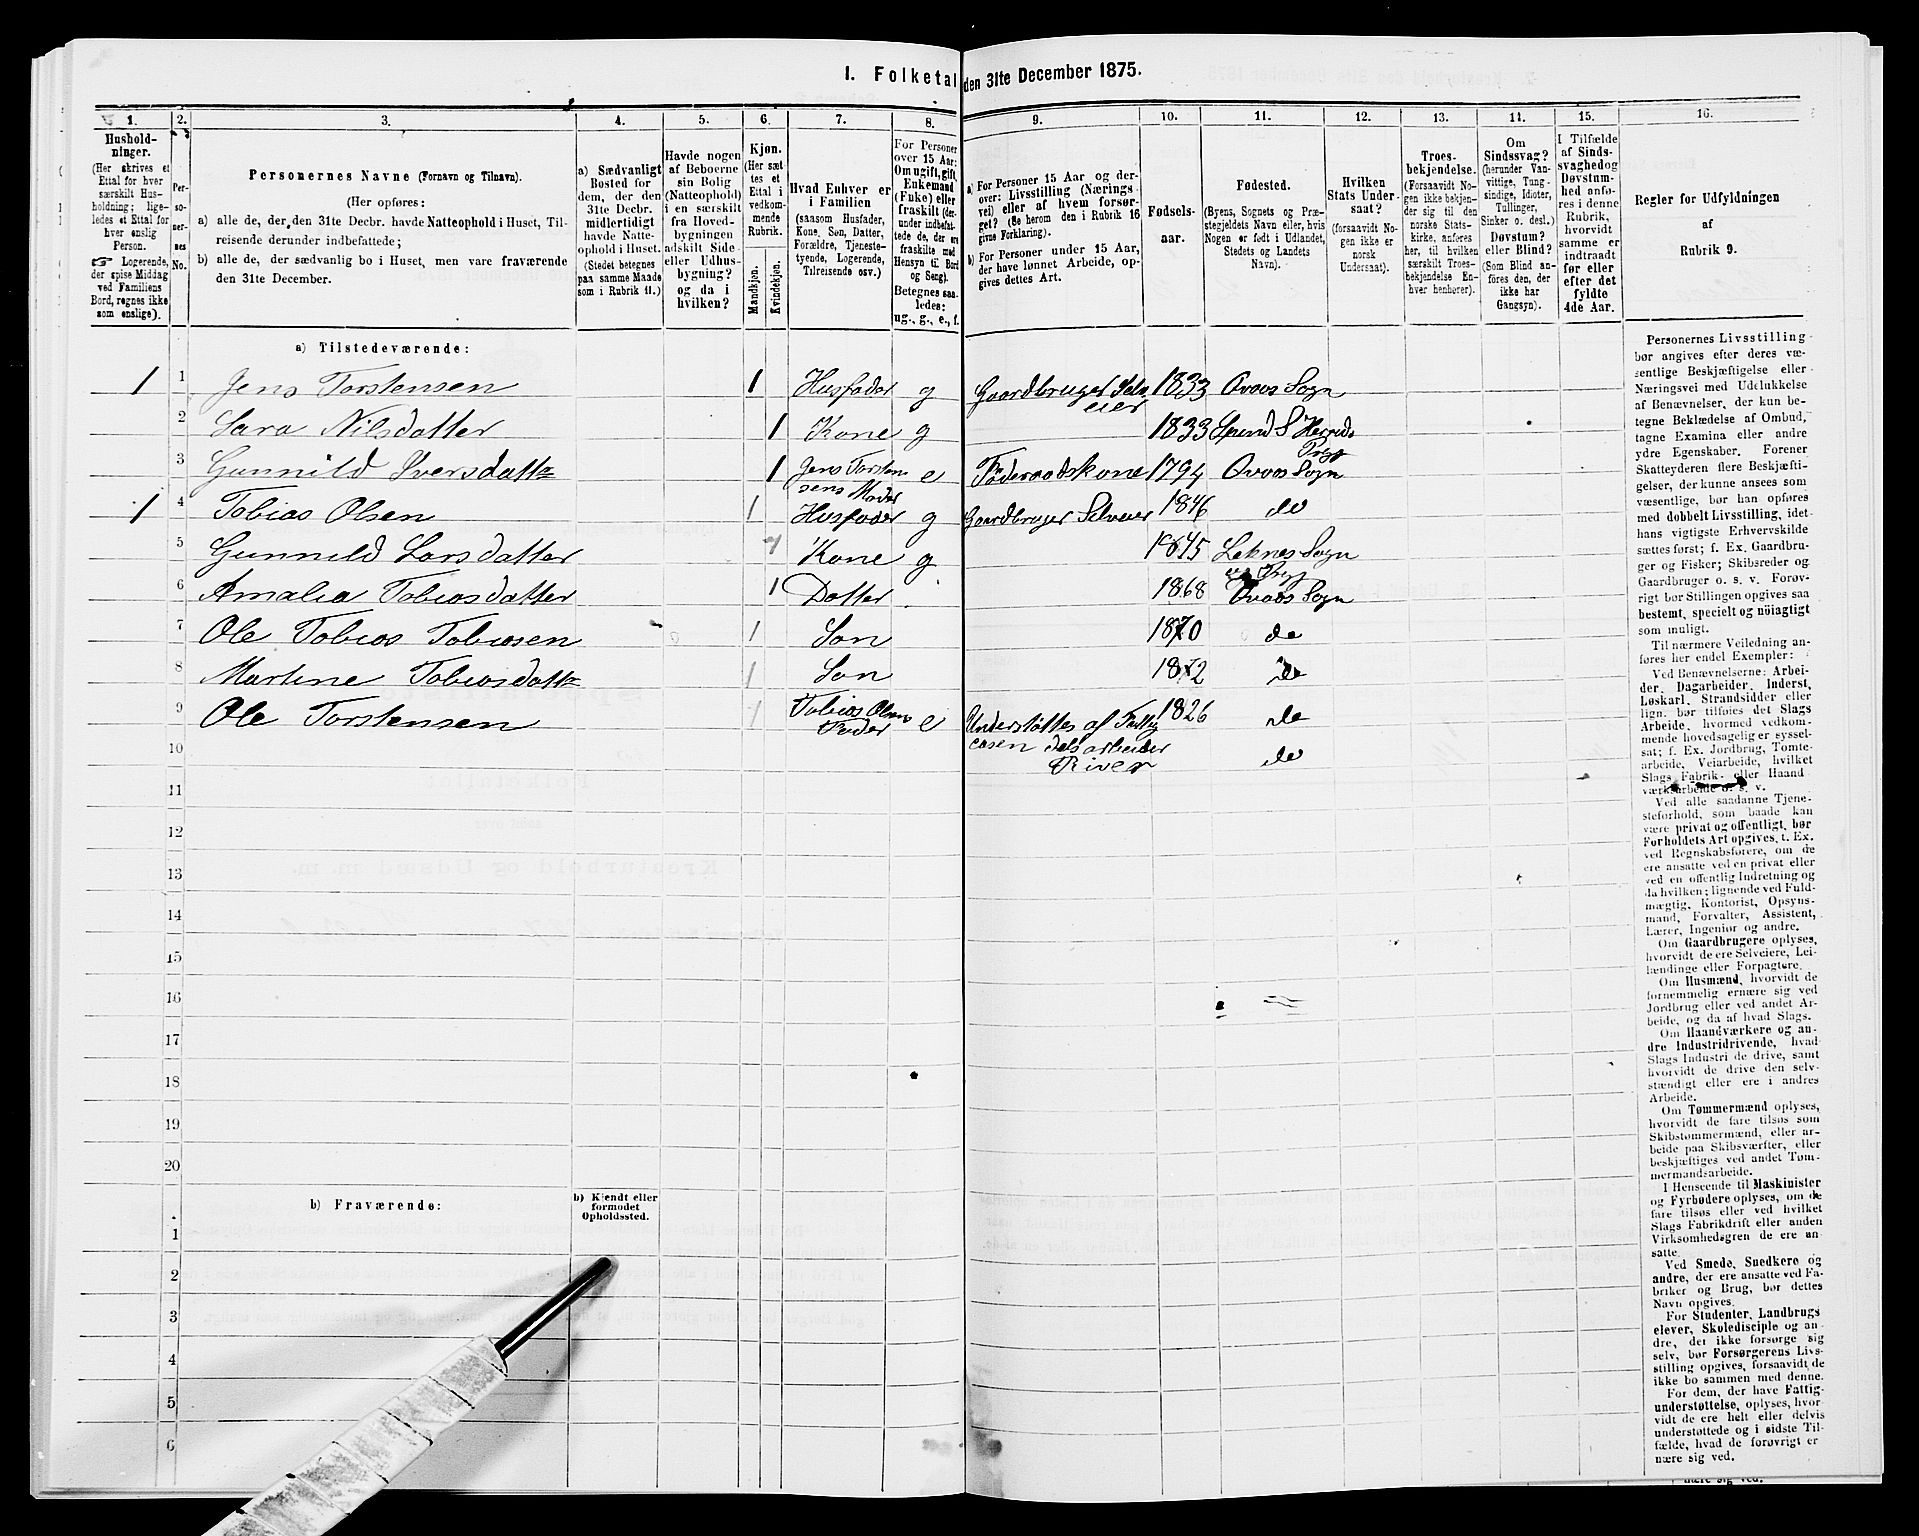 I. Folketal den 31te December 1875.
1.
2.
3.
4.
5.
6.
7.
8.
9.
10.
11.
12.
13.
14.
15.
16.
Hushold-
ninger.
(Her skrives et
Ettal for hver
særskilt Hus-
holdning; lige-
ledes et Ettal for
hver enslig
Person.
☞ Logerende,
der spise Middag
ved Familiens
Bord, regnes ikke
som enslige).
Per-
so-
ner-
nes
No.
Personernes Navne (Fornavn og Tilnavn).
(Her opføres:
a) alle de, der den 31te Decbr. havde Natteophold i Huset, Til-
reisende derunder indbefattede;
b) alle de, der sædvanlig bo i Huset, men vare fraværende
den 31te December.
a) Sædvanligt
Bosted for
dem, der den
31te Decbr.
midlertidigt
havde Natte-
ophold i Huset.
(Stedet betegnes
paa samme Maade
som i Rubrik 11.)
Havde nogen
af Beboerne
sin Bolig
(Natteophold)
i en særskilt
fra Hoved-
bygningen
adskilt Side-
eller Udhus-
bygning?
og da i
hvilken?
Kjøn.
(Her sæt-
tes et
Ettal i
vedkom-
mende
Rubrik.
Mandkjøn.
Kvindekjøn.
Hvad Enhver er
i Familien
(saasom Husfader,
Kone, Søn, Datter,
Forældre, Tjeneste-
tyende, Logerende,
Tilreisende osv.)
For Personer
over 15 Aar:
Om ugift, gift,
Enkemand
(Enke) eller
fraskilt (der-
under indbefat-
tede de, der ere
fraskilte med
Hensyn til Bord
og Seng).
Betegnes saa-
ledes:
ug., g., e., f.
a) For Personer 15 Aar og der-
over: Livsstilling (Nærings
vei) eller af hvem forsør-
get? (Se herom den i Rubrik 16
givne Forklaring).
b) For Personer under 15 Aar,
der have lønnet Arbeide, op-
gives dettes Art.
Fødsels-
aar.
Fødested.
(Byens, Sognets og Præ-
stegjeldets Navn eller, hvis
Nogen er født i Udlandet,
Stedets og Landets
Navn).
Hvilken
Stats Under-
saat?
(forsaavidt No-
gen ikke er
norsk
Undersaat).
Troes-
bekjendelse.
(Forsaavidt No-
gen ikke bekjen-
der sig til den
norske Stats-
kirke, anføres
her, til hvilken
særskilt Troes-
bekjendelse En-
hver henhører).
Om
Sindssvag?
(herunder Van-
vittige, Tung-
sindige, Idioter,
Tullinger,
Sinker o. desl.)
Døvstum?
eller Blind?
(Som Blind an-
føres den, der
ikke har
Gangsyn).
I Tilfælde
af Sinds-
svaghed og
Døvstum-
hed anfø-
res i denne
Rubrik,
hvorvidt
samme er
indtraadt
før eller
efter det
fyldte
4de Aar.
Regler for Udfyldningen
af
Rubrik 9.
a) Tilstedeværende:
1 1 Jens Torstensen 1 Husfader g Gaardbruger Selv eier 1833 Ovoos Sogn
2 Sara Nilsdatter 1 Kone g 1833 Lund S Herreds Preg
3 Gunnild Iversdattr 1 Jens Torsten sens Moder e Føderaadskone 1794 Ovoos Sogn
1 4 Tobias Olsen 1 Husfader g Gaardbruger Selveier 1846 do
5 Gunnild Larsdatter 1 Kone g 1845 Leknes Sogn og Preg
6 Amalia Tobiasdatter 1 Datter 1868 Ovoos Sogn
7 Ole Tobias Tobiasen 1 Søn 1870 do
8 Martine Tobiasdattr 1 Søn 1872 do
9 Ole Torstensen 1 Tobias Olsens Fader e Understøttes af Fattig casen dels arbeider 1826 do
10 do
11
12
13
14
15
16
17
18
19
20
b) Fraværende:
b) Kjendt eller
formodet
Opholdssted.
1
2
3
4
5
6
Personernes Livsstilling
bør angives efter deres væ-
sentlige Beskjæftigelse eller
Næringsvei med Udelukkelse
af Benævnelser, der kun be-
tegne Beklædelse af Ombud,
tagne Examina eller andre
ydre Egenskaber. Forener
Skatteyderen flere Beskjæfti-
gelser, der kunne ansees som
væsentlige, bør han opføres
med dobbelt Livsstilling, idet
hans vigtigste Erhvervskilde
sættes først; f. Ex. Gaardbru-
ger og Fisker; Skibsreder og
Gaardbruger o. s. v. Forøv-
rigt bør Stillingen opgives saa
bestemt, specielt og nöiagtigt
som muligt.
Til nærmere Veiledning an-
føres her endel Exempler:
Ved Benævnelserne: Arbei-
der, Dagarbeider, Inderst,
Løskarl, Strandsidder eller
lign. bør tilføies det Slags
Arbeide, hvormed vedkom-
mende hovedsagelig er syssel-
sat; f. Ex. Jordbrug, Tomte-
arbeide, Veiarbeide, hvilket
Slags Fabrik- eller Haand
værksarbeide o. s. v.
Ved alle saadanne Tjene-
steforhold, som baade kan
være privat og offentligt, bør
Forholdets Art opgives, t. Ex.
ved Regnskabsførere, om de
ere ansatte ved en privat eller
ved en offentlig Indretning og
da hvilken; lignende ved Fuld-
mægtig, Kontorist, Opsyns-
mand, Forvalter, Assistent,
Lærer, Ingeniør og andre.
Om Gaardbrugere oplyses,
hvorvidt de ere Selveiere, Lei-
lændinge eller Forpagtere.
Om Husmænd, hvorvidt de
fornemmelig ernære sig ved
Jordbrug eller ved andet Ar-
beide, og da af hvad Slags.
Om Haandværkere og an-
dre Industridrivende, hvad
Slags Industri de drive, samt
hvorvidt de drive den selv-
stændigt eller ere i andres
Arbeide.
Om Tømmermænd oplyses,
hvorvidt de fare tilsøs som
Skibstømmermænd, eller ar-
beide paa Skibsværfter, eller
beskjæftiges ved andet Tøm-
mermandsarbeide.
I Henseende til Maskinister
og Fyrbødere oplyses, om de
fare tilsøs eller ved hvilket
Slags Fabrikdrift eller anden
Virksomhedsgren de ere an-
satte.
Ved Smede, Snedkere og
andre, der ere ansatte ved Fa-
briker og Brug, bør dettes
Navn opgives.
For Studenter, Landbrugs
elever, Skoledisciple og an-
dre, der ikke forsørge sig
selv, bør Forsørgerens Livs-
stilling opgives, forsaavidt de
ikke bo sammen med denne.
For dem, der have Fattig-
understøttelse, oplyses, hvor-
vidt de ere helt eller delvis
understøttede og i sidste Til-
fælde, hvad de forøvrigt er
nære sig ved.
nære sig ved.